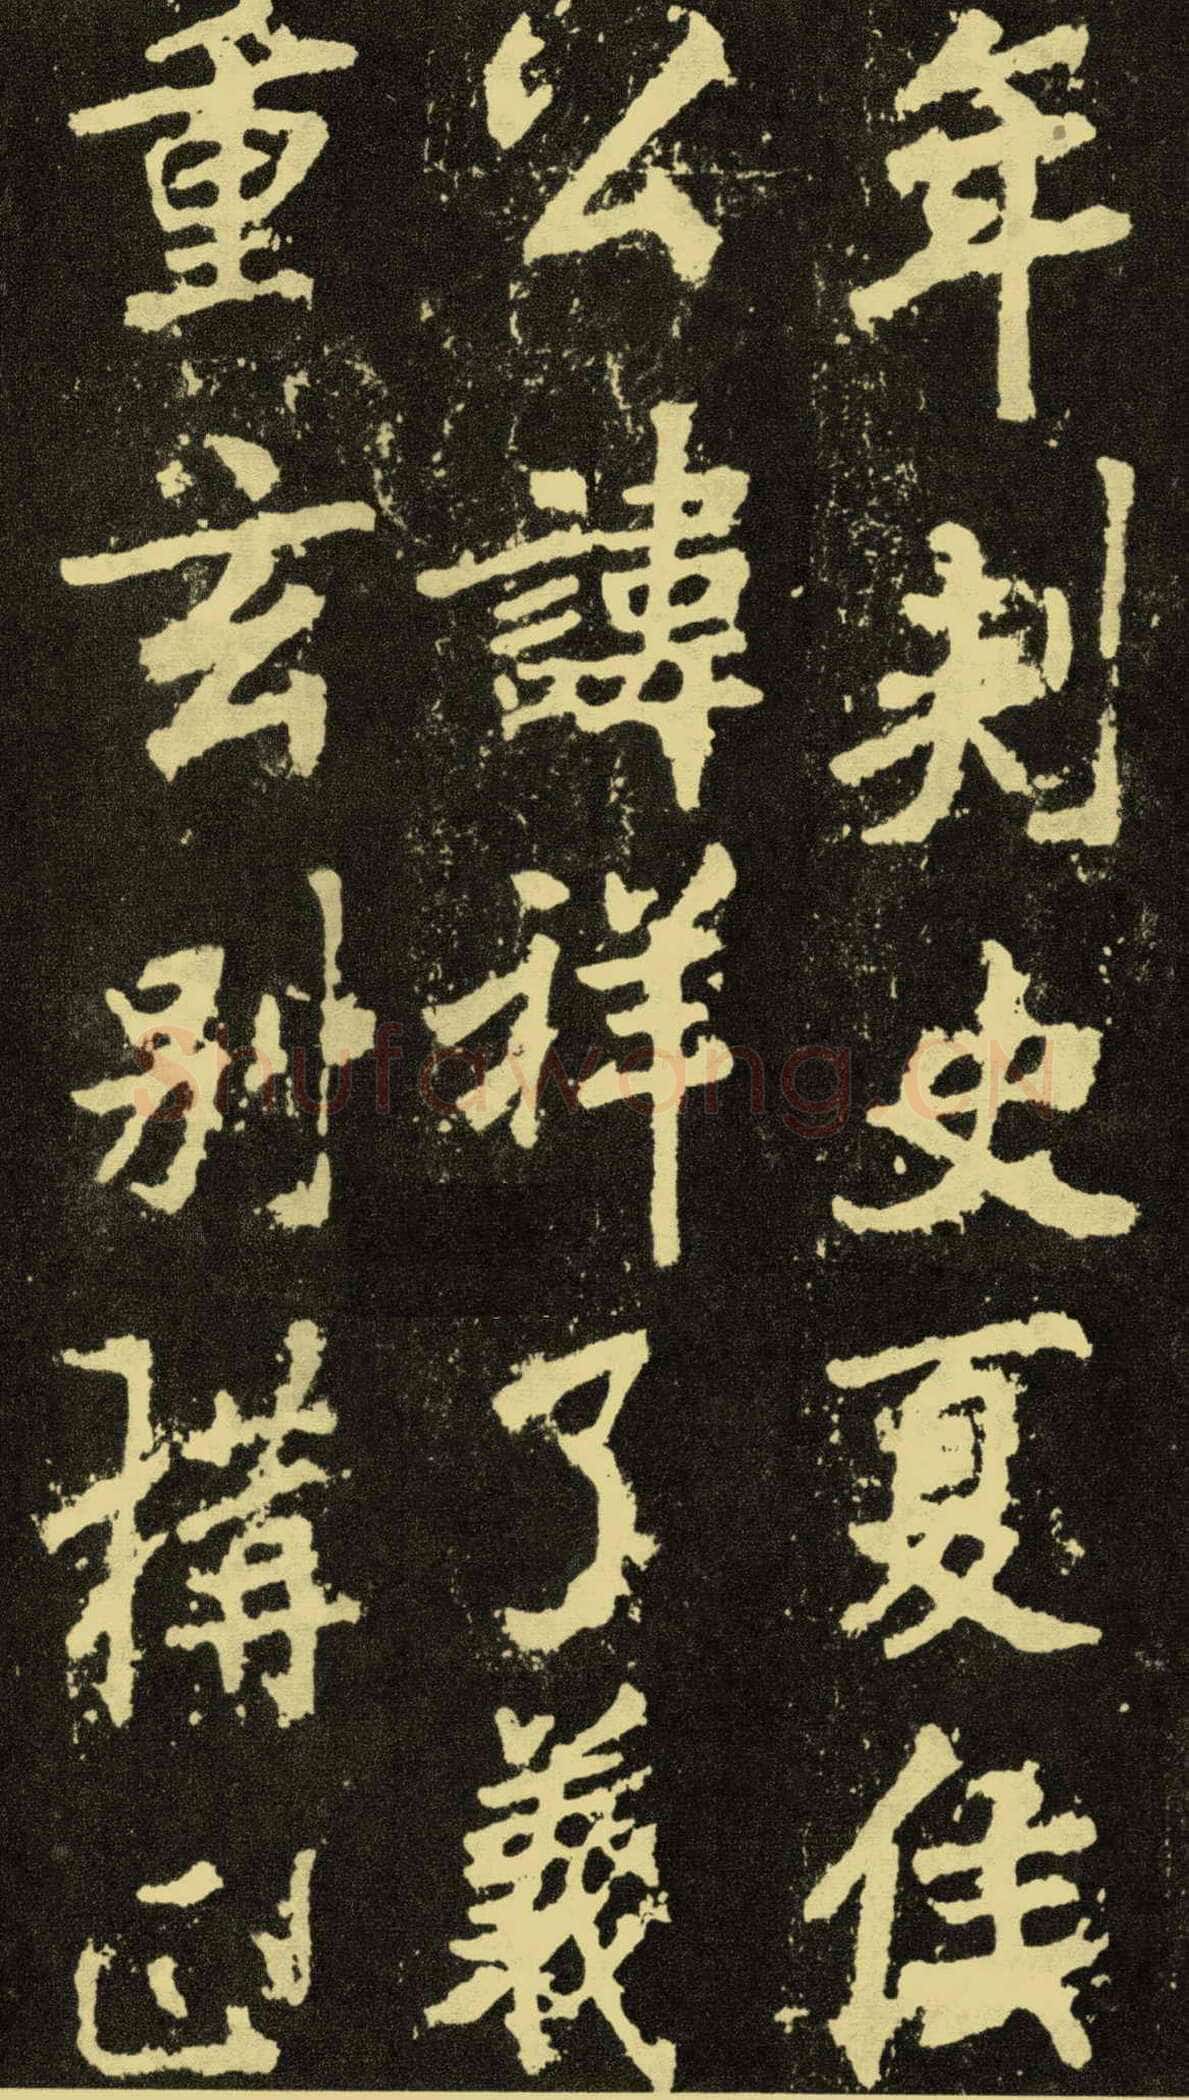 年刺史夏侯
公諱祥了義
重玄別構正
Shufawang.CN